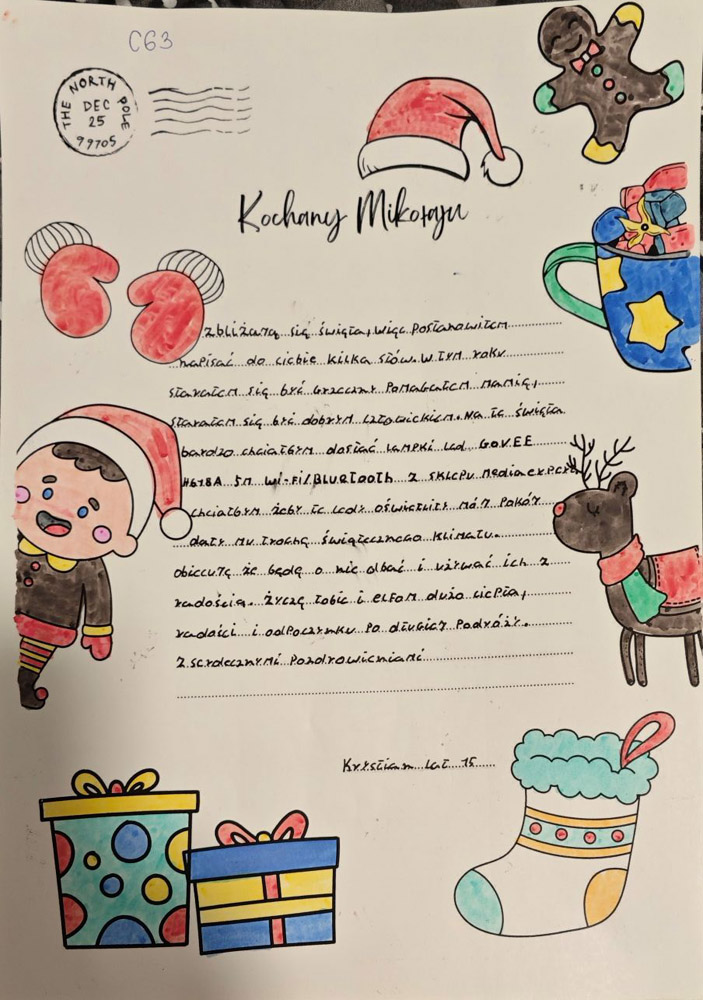 C63
THE NORTH POLE
DEC
25
99705
Kochany Mikołaju
Zbliżają się święta, więc postanowiłem
napisać do ciebie kilka słów. W tym roku
starałem się być grzeczny Pomagałem mamię,
starałem się być dobrym człowiekiem. Na te święta
bardzo chciałbym dostać lampki led GOVEE
H618A 5m wi-fi/Bluetooth z sklepu mediaexpert
chciałbym żeby te ledy oświetliły mój pokój
dały mu trochę świątecznego klimatu.
obiecuję że będę o nie dbać i używać ich z
radością. Życzę tobie i elfom dużo ciepła,
radości i odpoczynku po długiej podróży.
Z serdecznymi pozdrowieniami
Krystian lat 15